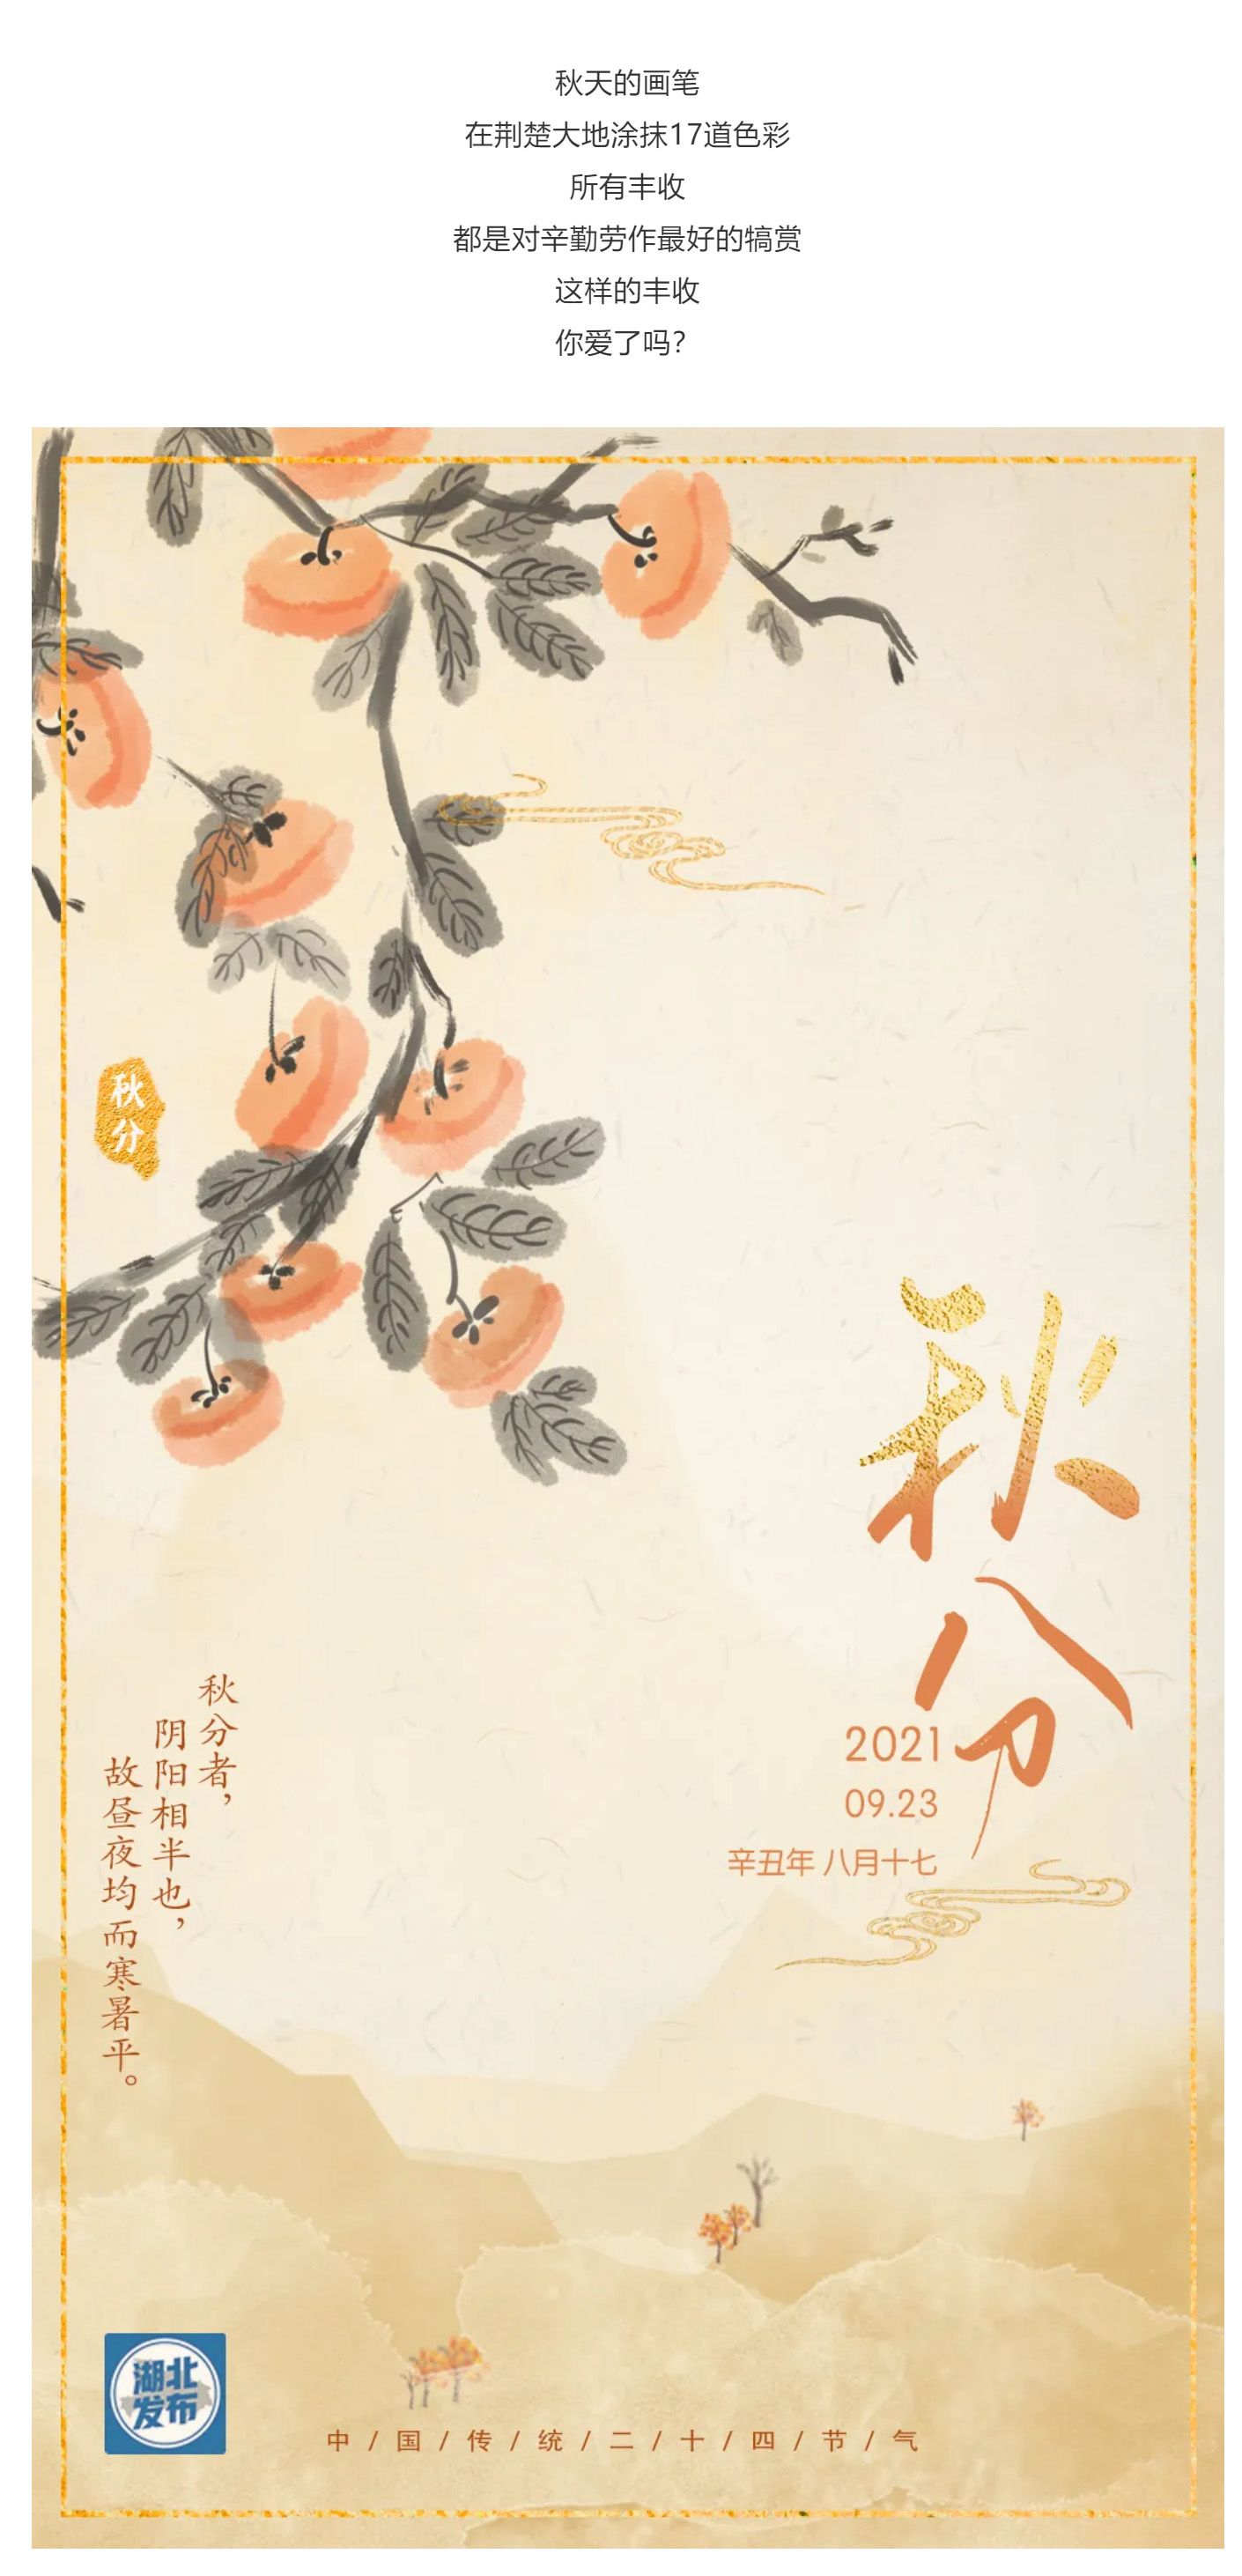 秋天的画笔
在荆楚大地涂抹17道色彩
所有丰收
都是对辛勤劳作最好的犒赏
这样的丰收
你爱了吗？
秋分
秋分
2021
09.23
辛丑年 八月十七
秋分者，
阴阳相半也，
故昼夜均而寒暑平。
湖北
发布
中/国/传/统/二/十/四/节/气